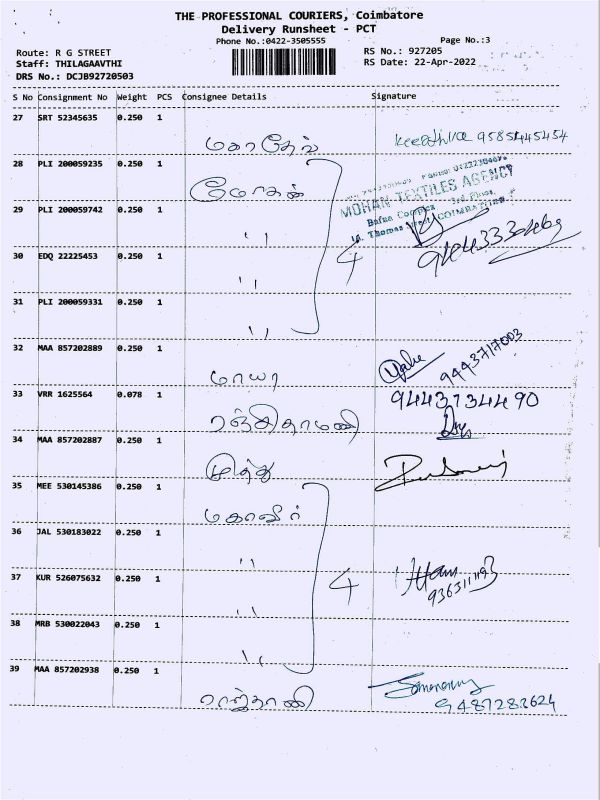 THE PROFESSIONAL COURIERS, Coimbatore
Delivery Runsheet - PCT
Phone No.:0422-3505555
Page No.:3
Route: R G STREET
RS No.: 927205
Staff: THILAGAAVTHI
RS Date: 22-Apr-2022
DRS No.: DCJB92720503
S No Consignment No Weight PCS Consignee Details Signature
27 SRT 52345635 0.250 1
மகாதேவ் 9585445454
28 PLI 200059235 0.250 1
மோகன்
MOHAN TEXTILES AGENCY
29 PLI 200059742 0.250 1
" 4
30 EDQ 22225453 0.250 1
"
31 PLI 200059331 0.250 1
"
32 MAA 857202889 0.250 1
மாயா 9443717003
33 VRR 1625564 0.078 1
ரஞ்சிதாமணி 9443734490
34 MAA 857202887 0.250 1
முத்து
35 MEE 530145386 0.250 1
மகாவீர்
36 JAL 530183022 0.250 1
" 4
37 KUR 526075632 0.250 1
"
38 MRB 530022043 0.250 1
"
39 MAA 857202938 0.250 1
ராஜ்தாணி 9487282624